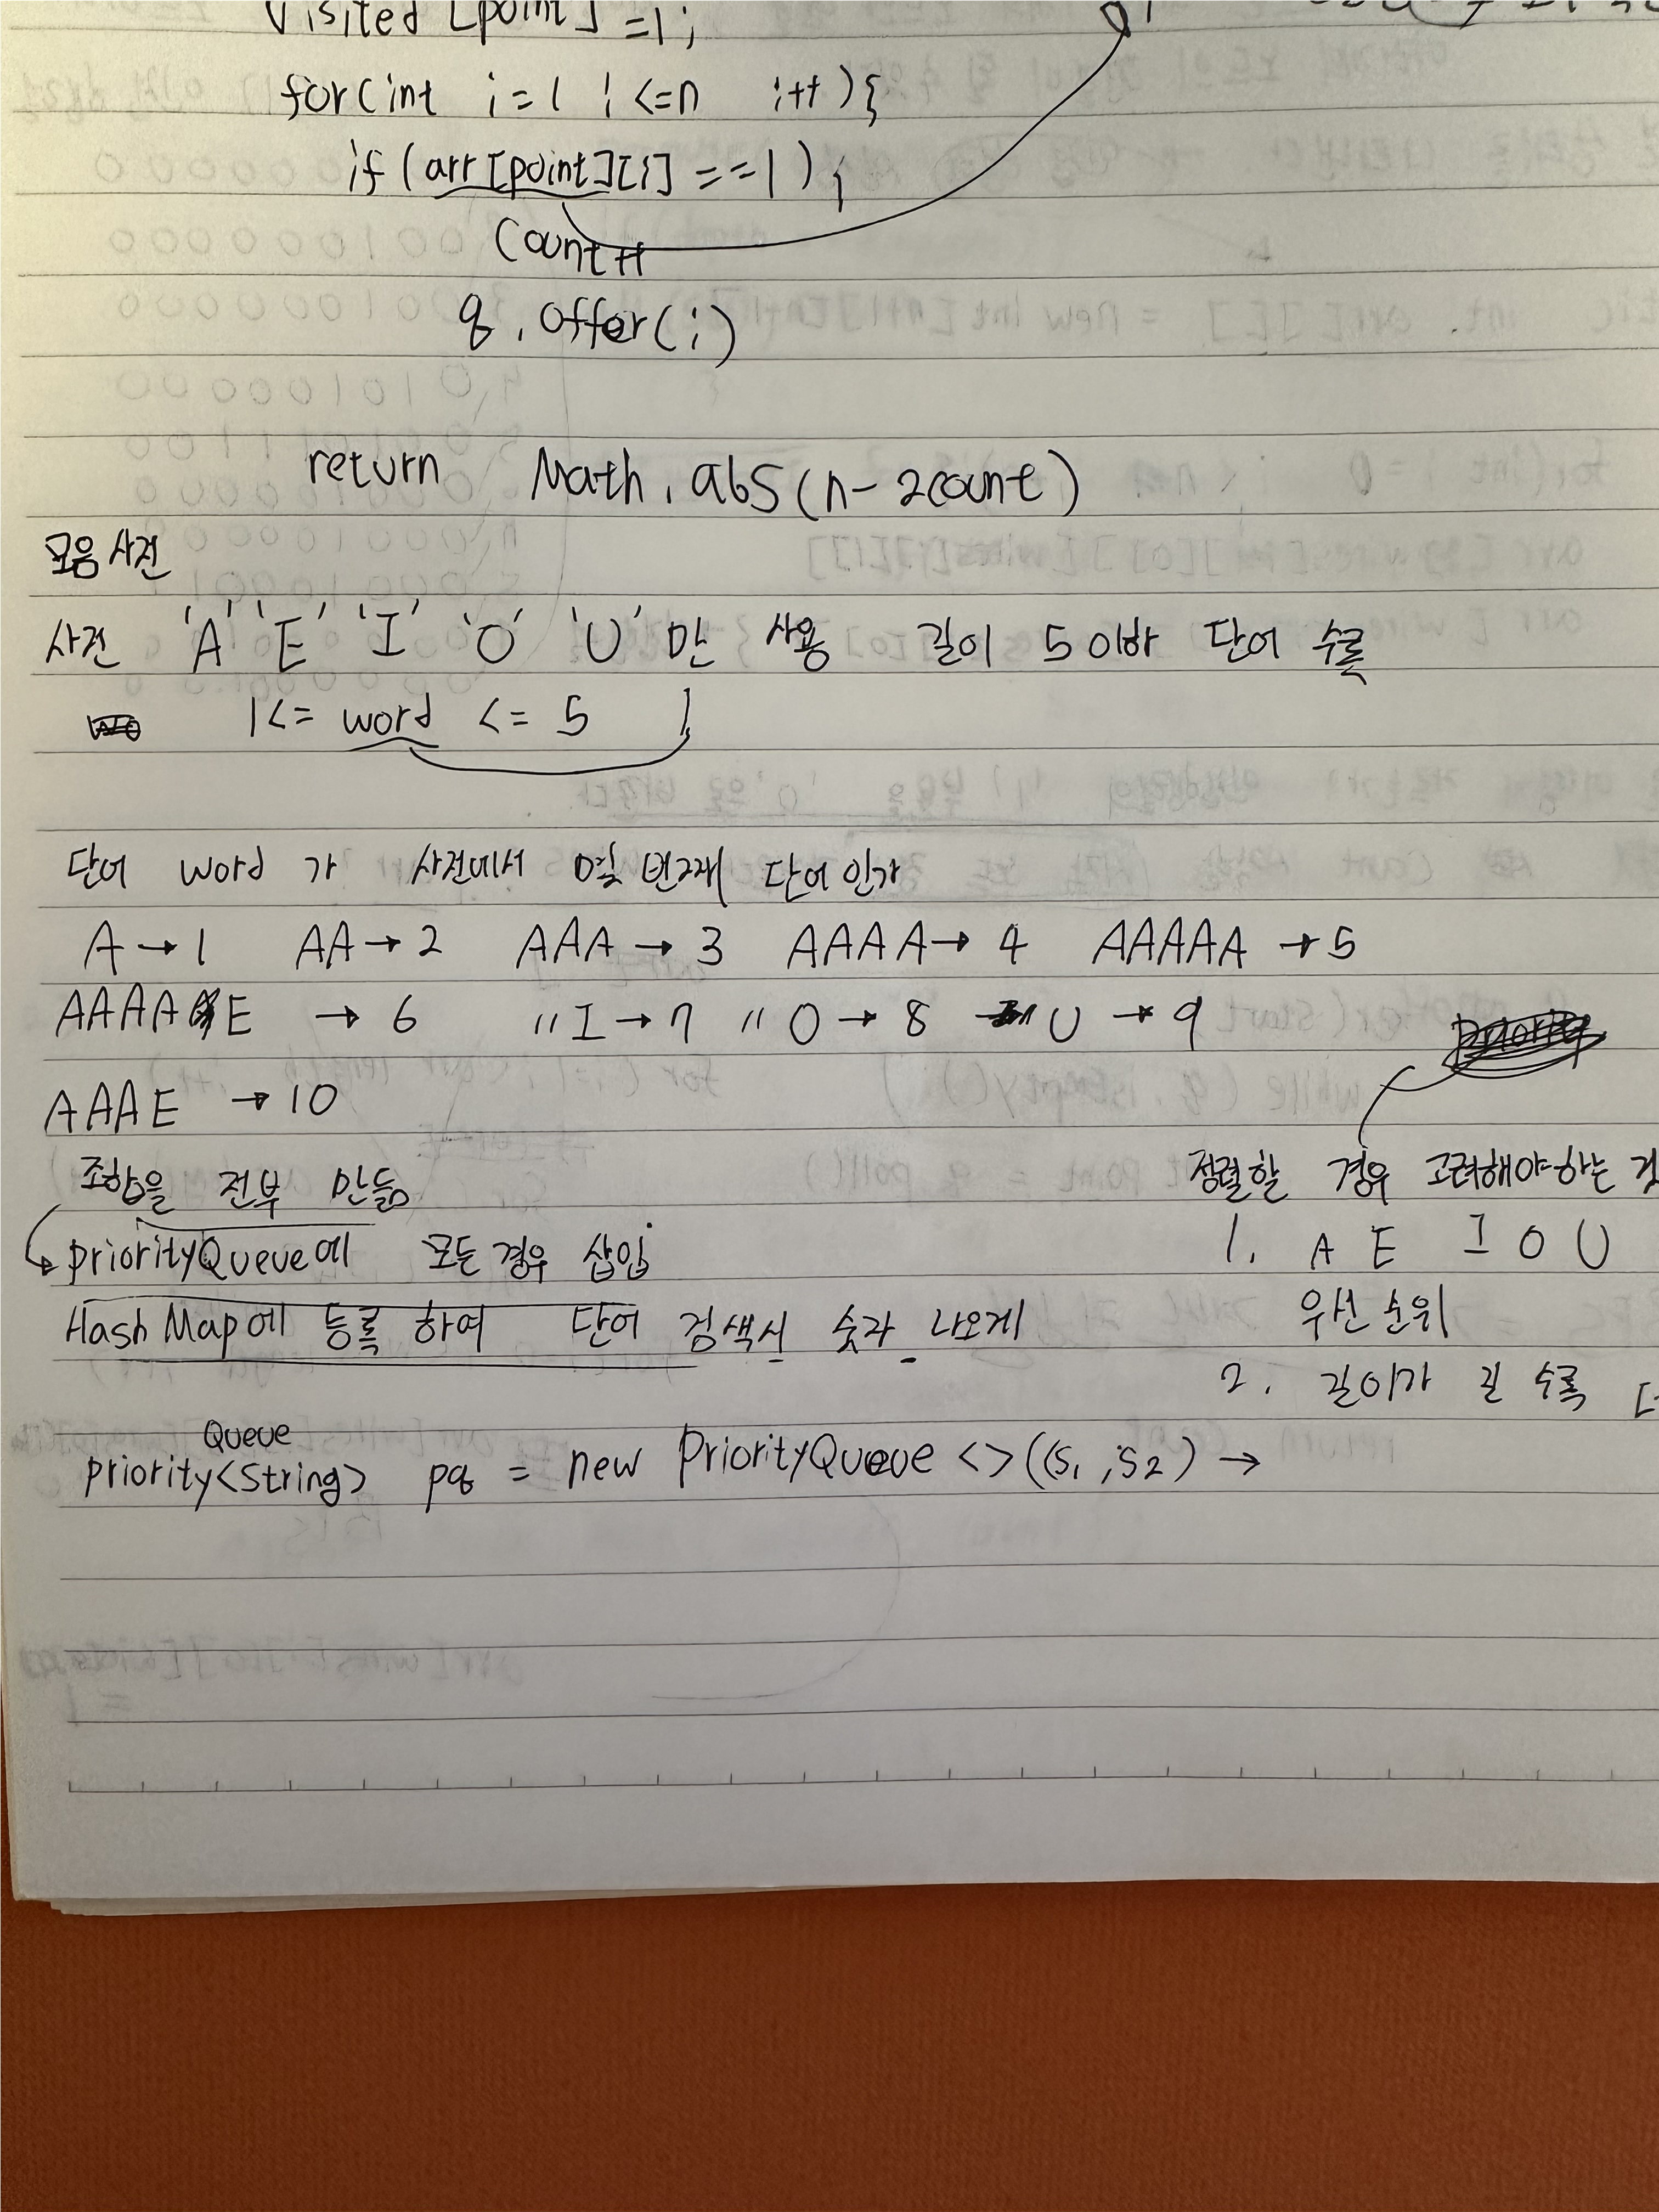 visited [point] =1;
for(int i=1 i<=n i++){
if (arr[point][i] ==1) {
Count++
q.offer(i)
return Math.abs(n-2count)
모음 사전
사전 'A' 'E' 'I' 'O' 'U' 만 사용 길이 5 이하 단어 수록
1<= word <= 5
단어 word 가 사전에서 몇 번째 단어 인가
A→1 AA→2 AAA→3 AAAA→4 AAAAA→5
AAAAE →6 "I→7 "O→8 "U→9
AAAE →10
조합을 전부 만듦
priorityQueue에 모든 경우 삽입
HashMap에 등록 하여 단어 검색시 숫자 나오게
정렬할 경우 고려해야하는
1. A E I O U
우선 순위
2. 길이가 길 수록
Queue
priority<String> pq = new PriorityQueue <>((s1,s2) →